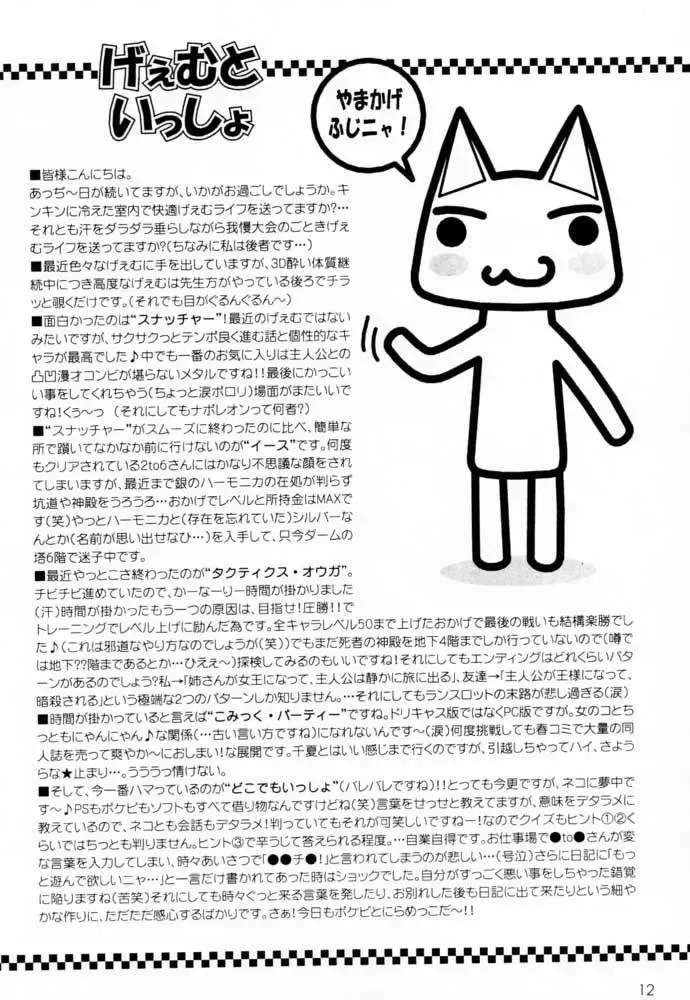 げぇむと
いっしょ
やまかげ
ふじニャ!
■皆様こんにちは。
あっぢ~日が続いてますが、いかがお過ごしでしょうか。キ
ンキンに冷えた室内で快適げぇむライフを送ってますか?…
それとも汗をダラダラ垂らしながら我慢大会のごときげぇ
むライフを送ってますか?(ちなみに私は後者です…)
■最近色々なげぇむに手を出していますが、3D酔い体質継
続中につき高度なげぇむは先生方がやっている後ろでチラ
ッと覗くだけです。(それでも目がぐるんぐるん~)
■面白かったのは“スナッチャー”!最近のげぇむではない
みたいですが、サクサクっとテンポ良く進む話と個性的なキ
ャラが最高でした♪中でも一番のお気に入りは主人公との
凸凹漫才コンビが堪らないメタルですね!!最後にかっこい
い事をしてくれちゃう(ちょっと涙ポロリ)場面がまたいいで
すね!くぅ~っ (それにしてもナポレオンって何者?)
■“スナッチャー”がスムーズに終わったのに比べ、簡単な
所で躓いてなかなか前に行けないのが“イース”です。何度
もクリアされている2to6さんにはかなり不思議な顔をされ
てしまいますが、最近まで銀のハーモニカの在処が判らず
坑道や神殿をうろうろ…おかげでレベルと所持金はMAXで
す(笑)やっとハーモニカと(存在を忘れていた)シルバーな
んとか(名前が思い出せなひ…)を入手して、只今ダームの
塔6階で迷子中です。
■最近やっとこさ終わったのが“タクティクス・オウガ”。
チビチビ進めていたので、かーなーりー時間が掛かりました
(汗)時間が掛かったもう一つの原因は、目指せ!圧勝!!で
トレーニングでレベル上げに励んだ為です。全キャラレベル50まで上げたおかげで最後の戦いも結構楽勝でし
た♪(これは邪道なやり方なのでしょうが(笑))でもまだ死者の神殿を地下4階までしか行っていないので(噂で
は地下??階まであるとか…ひえぇ~)探検してみるのもいいですね!それにしてもエンディングはどれくらいパタ
ーンがあるのでしょう?私→「姉さんが女王になって、主人公は静かに旅に出る」、友達→「主人公が王様になって、
暗殺される」という極端な2つのパターンしか知りません。…それにしてもランスロットの末路が悲し過ぎる(涙)
■時間が掛かっていると言えば“こみっく・パーティー”ですね。ドリキャス版ではなくPC版ですが。女のコとちっ
ともにゃんにゃん♪な関係(…古い言い方ですね)になれないんです~(涙)何度挑戦しても春コミで大量の同
人誌を売って爽やか~におしまい!な展開です。千夏とはいい感じまで行くのですが、引越しちゃってハイ、さよう
らな★止まり…。うううっ情けない。
■そして、今一番ハマっているのが“どこでもいっしょ”(バレバレですね)!!とっても今更ですが、ネコに夢中で
す~♪PSもポケピもソフトもすべて借り物なんですけどね(笑)言葉をせっせと教えてますが、意味をデタラメに
教えているので、ネコとも会話もデタラメ!判っていてもそれが可笑しいですねー!なのでクイズもヒント①②く
らいではちっとも判りません。ヒント③で辛うじて答えられる程度。…自業自得です。お仕事場で●to●さんが変
な言葉を入力してしまい、時々あいさつで「●●チ●!」と言われてしまうのが悲しい…(号泣)さらに日記に「もっ
と遊んで欲しいニャ…」と一言だけ書かれてあった時はショックでした。自分がすっごく悪い事をしちゃった錯覚
に陥りますね(苦笑)それにしても時々ぐっと来る言葉を発したり、お別れした後も日記に出て来たりという細や
かな作りに、ただただ感心するばかりです。さぁ!今日もポケピとにらめっこだ~!!
12